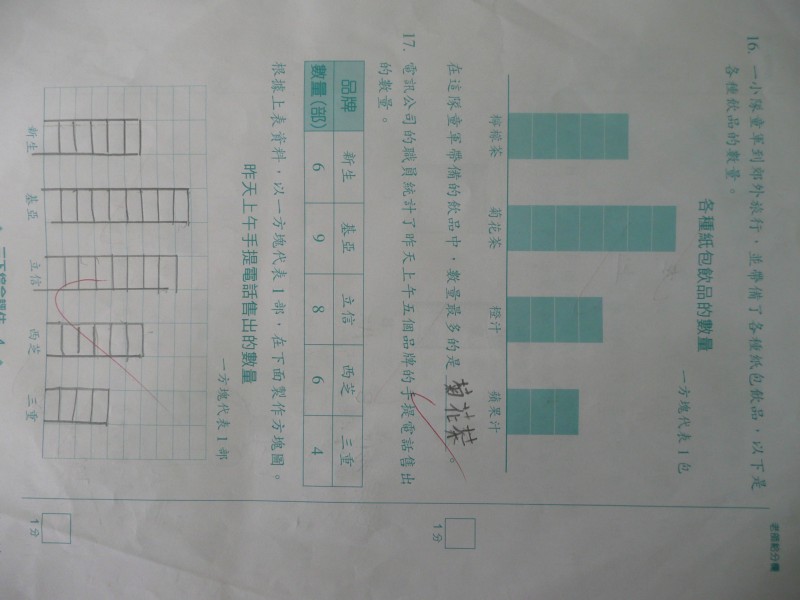 老師給分欄
16. 一小隊童軍到郊外旅行，並帶備了各種紙包飲品，以下是
各種飲品的數量。
各種紙包飲品的數量
一方塊代表1包
檸檬茶 菊花茶 橙汁 蘋果汁
在這隊童軍帶備的飲品中，數量最多的是 菊花茶 。
1分
17. 電訊公司的職員統計了昨天上午五個品牌的手提電話售出
的數量。
品牌 新生 基亞 立信 西芝 三重
數量(部) 6 9 8 6 4
根據上表資料，以一方塊代表1部，在下面製作方塊圖。
昨天上午手提電話售出的數量
一方塊代表1部
新生 基亞 立信 西芝 三重
1分